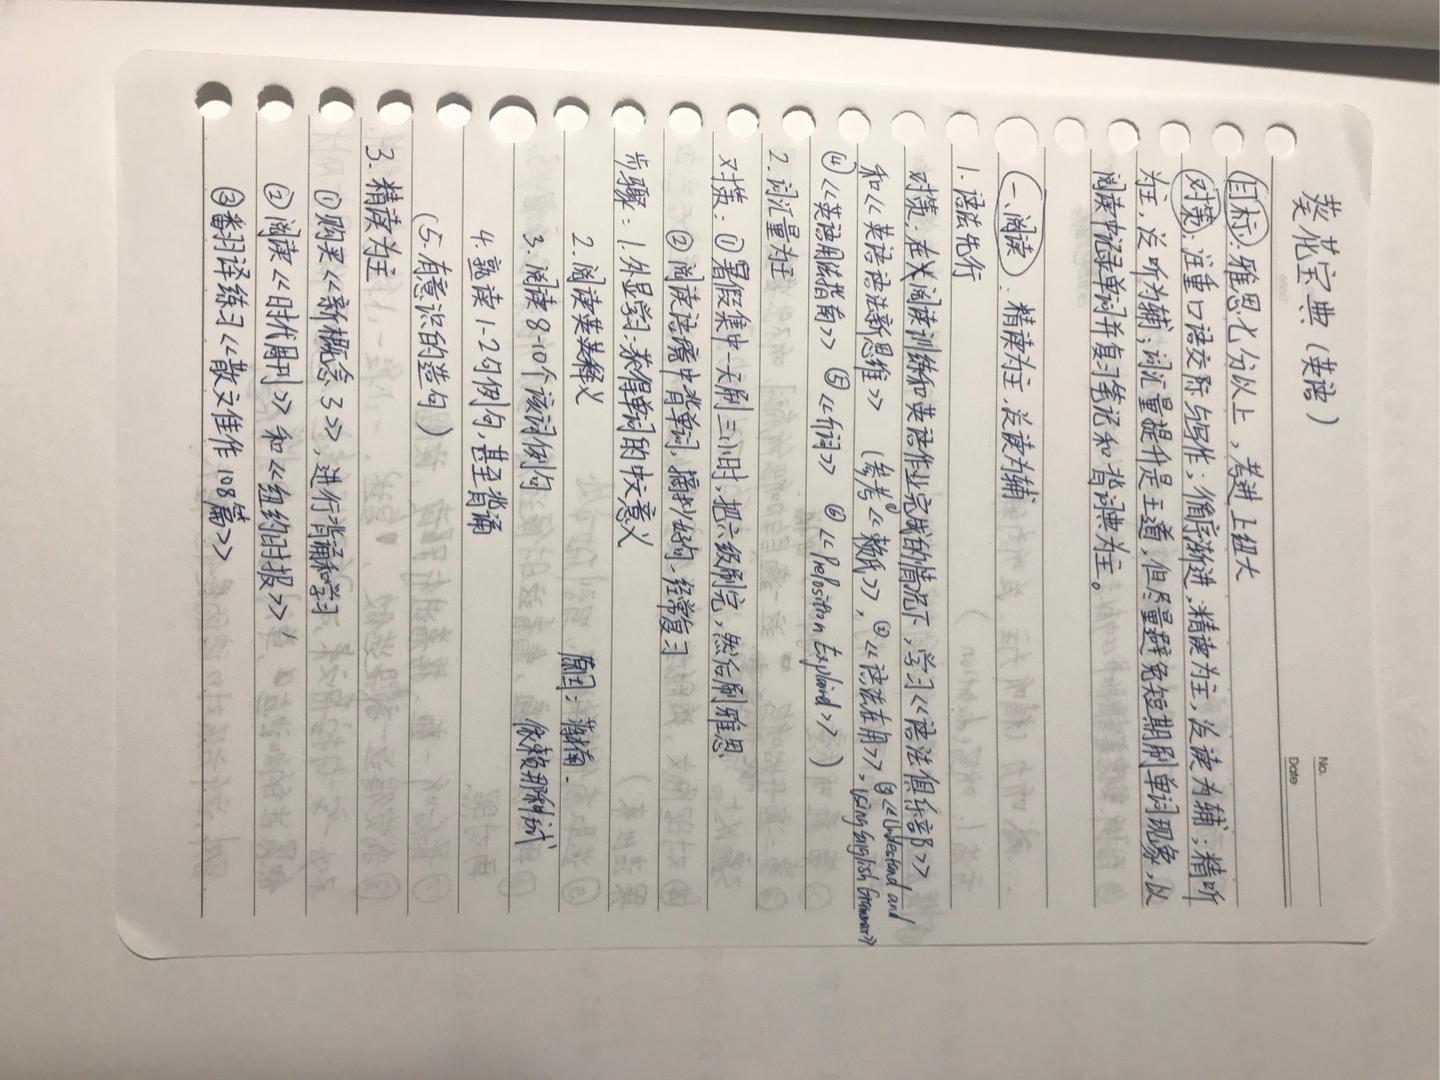 No.
Date
葵花宝典（英语）
目标：雅思七分以上，考进上纽大
对策：注重口语交际与写作；循序渐进；精读为主，泛读为辅；精听
为主，泛听为辅；词汇量提升是王道，但尽量避免短期刷单词现象，以
阅读中记录单词并复习笔记和背词典为主。
一、阅读：精读为主，泛读为辅
1. 语法先行
对策：在大阅读训练和英语作业完成的情况下，学习<<语法俱乐部>>
和<<英语语法新思维>>（参考①<<赖氏>>，②<<语法在用>>，③<<Understand and
Using English Grammar>>
④<<英语用法指南>> ⑤<<介词>> ⑥<<Preposition Explained>>）
2. 词汇量为王
对策：①暑假集中一天刷三小时，把六级刷完，然后刷雅思
②阅读语境中背单词，摘抄好句，经常复习
步骤：1. 外显学习：获得单词的中文意义
2. 阅读英英释义
原因：
3. 阅读8-10个该词例句
依赖
4. 熟读1-2句例句，甚至背诵
（5. 有意识的造句）
3. 精读为主
①购买<<新概念3>>，进行背诵和学习
②阅读<<时代周刊>>和<<纽约时报>>
③翻译练习<<散文佳作108篇>>